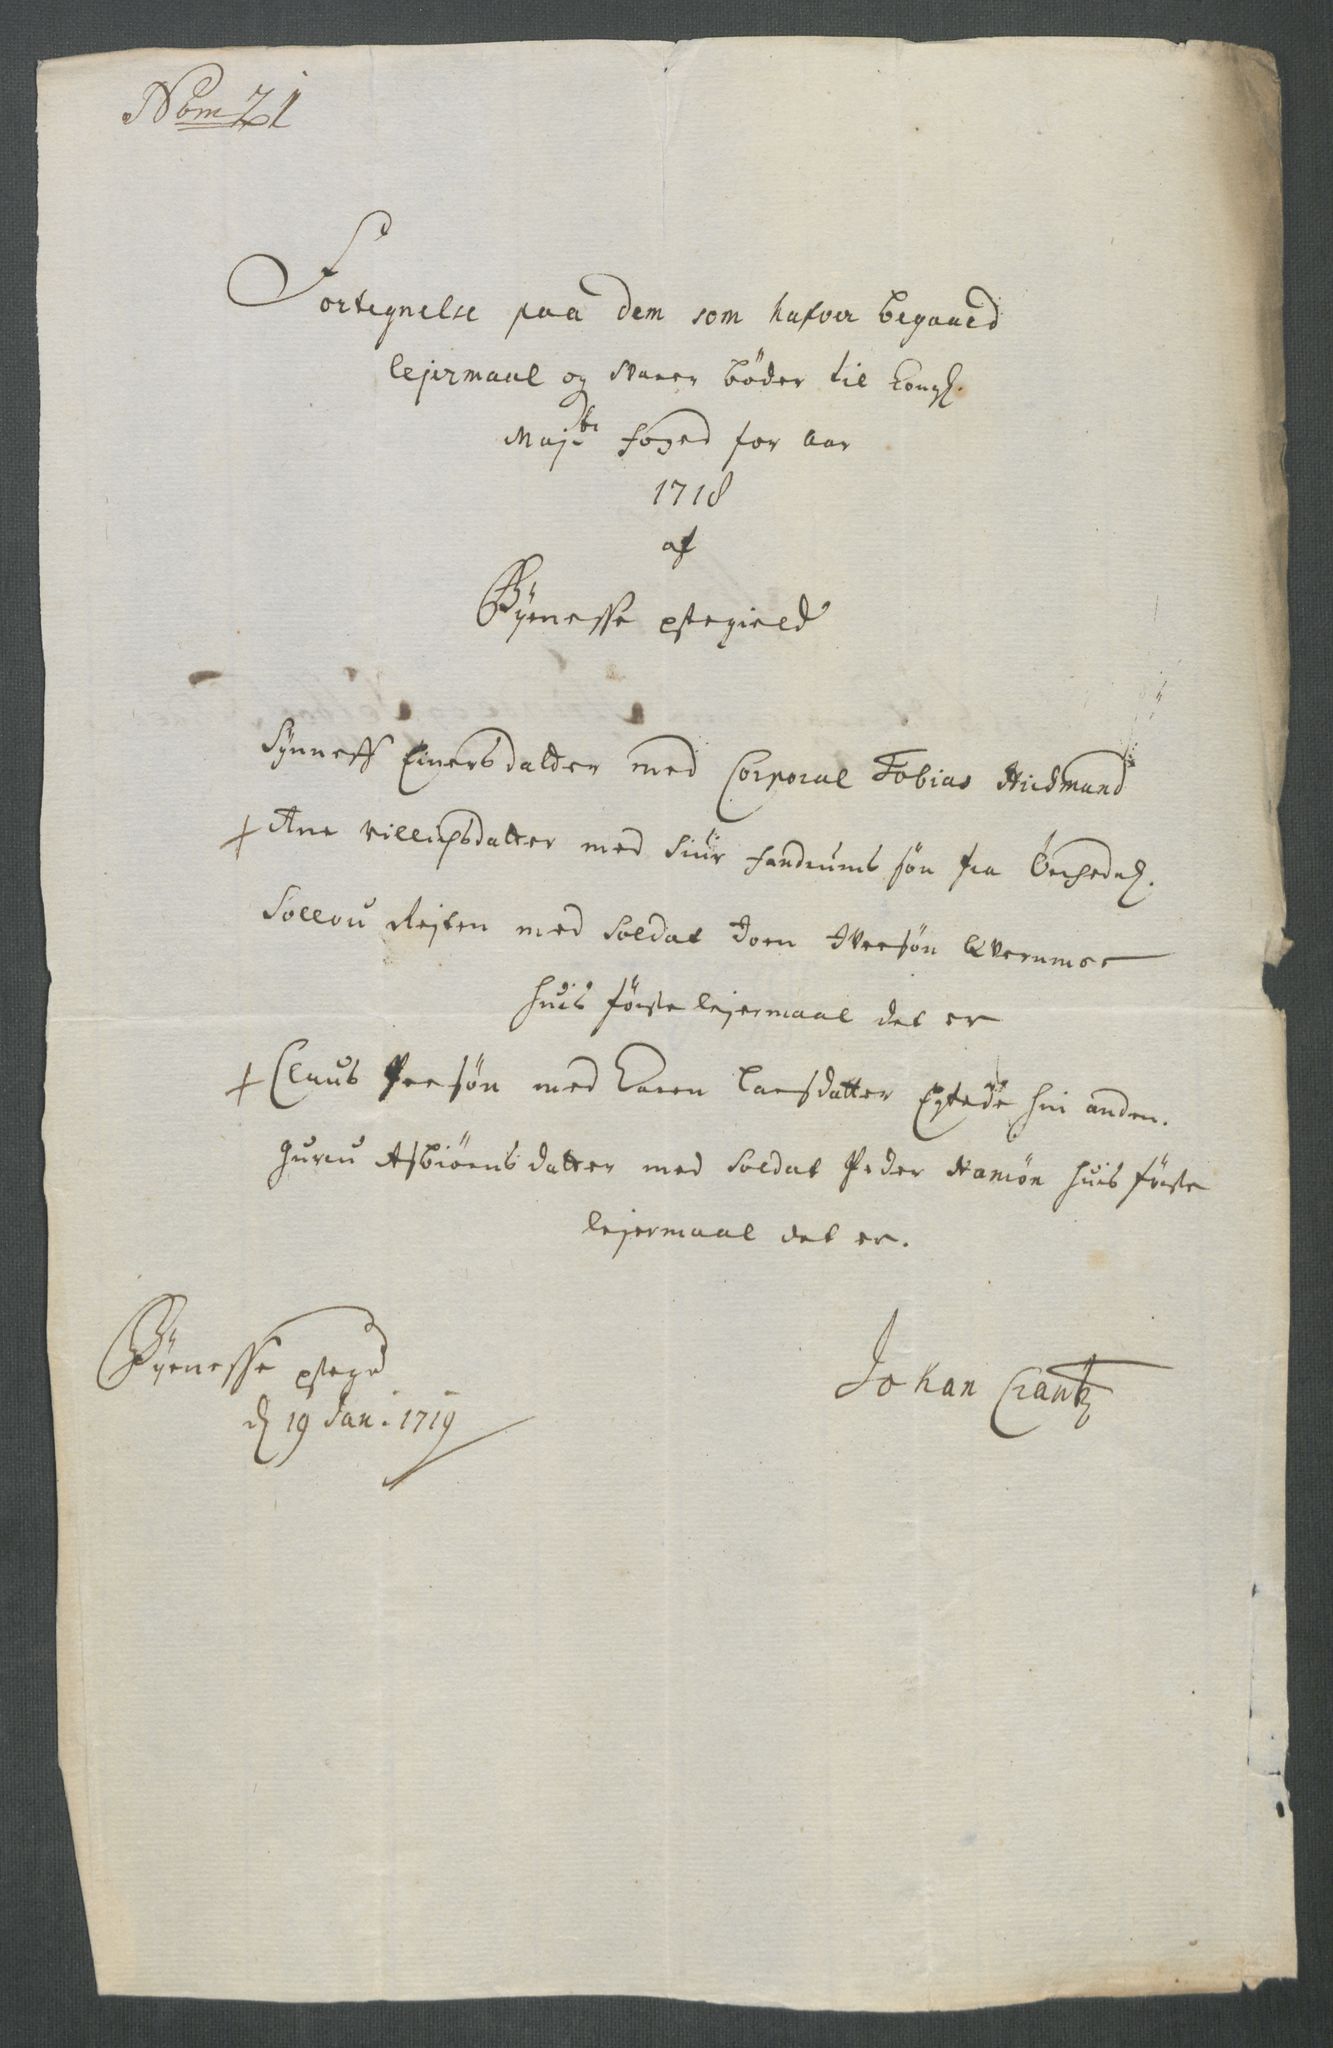 Nom 21
Fortegnelse paa dem som hafver begaaed
lejermaal og svarer böder til Kongl.
Majts foged for Aar
1718
af
Byenesse pstegield
Synneff Einersdatter med Corporal Tobias
+ Ane Villupsdatter med Siur sön fra
Sollou med Soldat Joen Iversön Qvernmoe
huis förste lejermaal det er
+ Claus Peersön med Karen Larsdatter Egtede hin anden.
Guru Asbiörnsdatter med Soldat Peder huis förste
lejermaal det er.
Byenesse pstegd
d 19 Jan. 1719
Johan Crantz